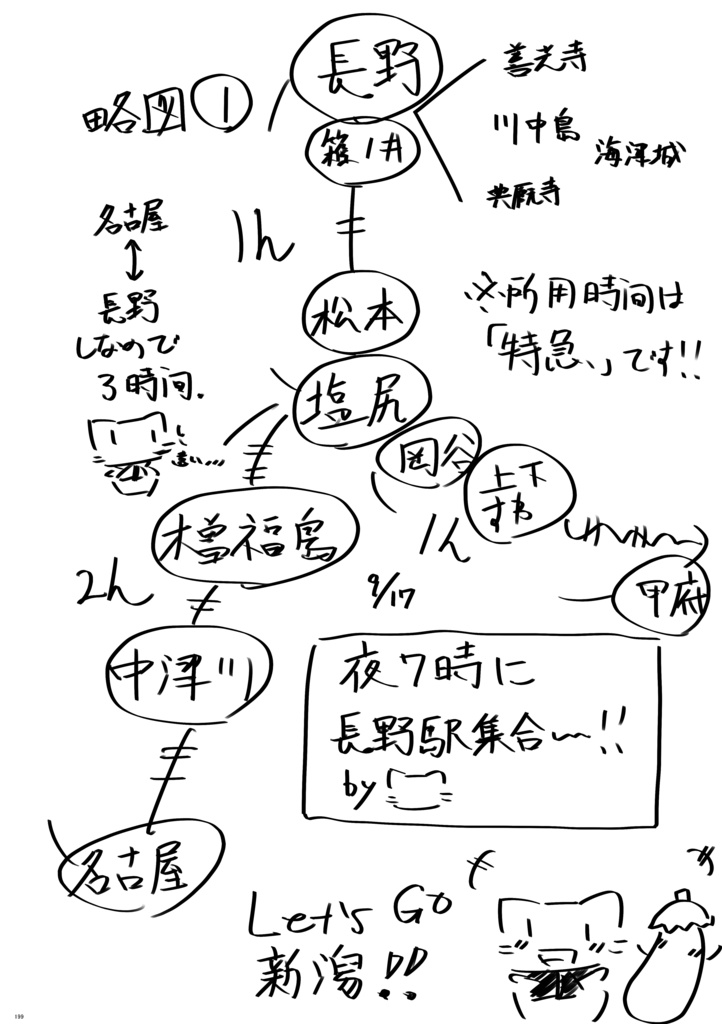 長野
善光寺
略図①
川中島
海津城
篠ノ井
典厩寺
名古屋
↕
長野
しなので
3時間.
1h
松本
※所用時間は
「特急」です!!
塩尻
岡谷
上下
すわ
遠い…
木曽福島
1h
2h
9/17
甲府
中津川
夜7時に
長野駅集合〜!!
by
名古屋
Let's Go
新潟!!
199